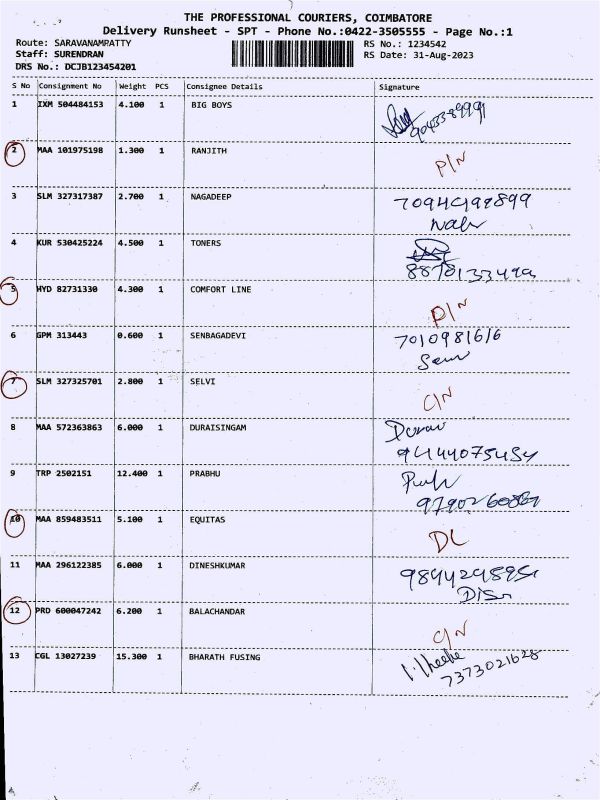 THE PROFESSIONAL COURIERS, COIMBATORE
Delivery Runsheet - SPT - Phone No.:0422-3505555 - Page No.:1
Route: SARAVANAMPATTY RS No.: 1234542
Staff: SURENDRAN RS Date: 31-Aug-2023
DRS No.: DCJB123454201
S No Consignment No Weight PCS Consignee Details Signature
1 IXM 504484153 4.100 1 BIG BOYS
2 MAA 101975198 1.300 1 RANJITH P/N
3 SLM 327317387 2.700 1 NAGADEEP
4 KUR 530425224 4.500 1 TONERS
5 HYD 82731330 4.300 1 COMFORT LINE P/N
6 GPM 313443 0.600 1 SENBAGADEVI 7010981616
7 SLM 327325701 2.800 1 SELVI C/N
8 MAA 572363863 6.000 1 DURAISINGAM
9 TRP 2502151 12.400 1 PRABHU
10 MAA 859483511 5.100 1 EQUITAS DL
11 MAA 296122385 6.000 1 DINESHKUMAR
12 PRD 600047242 6.200 1 BALACHANDAR C/N
13 CGL 13027239 15.300 1 BHARATH FUSING
7373021628